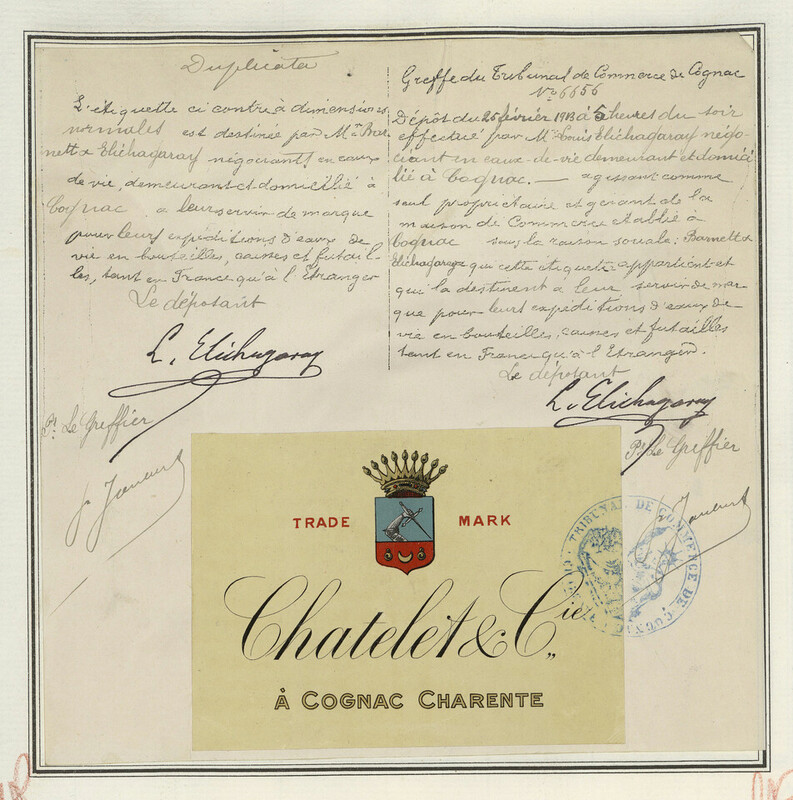 Duplicata
L'étiquette ci contre à dimensions
normales est destinée par Mrs Bar
nett & Elichagaray négociants en eaux
de vie, demeurant et domicilié à
Cognac a leur servir de marque
pour leurs expéditions d'eaux de
vie en bouteilles, caisses et futail
les, tant en France qu'à l'Etranger
Le déposant
L. Elichagaray
Pr. Le Greffier
Greffe du Tribunal de Commerce de Cognac
No 6656
Dépôt du 25 février 1913 à 5 heures du soir
effectué par Mr Louis Elichagaray négo
ciant en eaux-de-vie demeurant et domici
lié à Cognac. — agissant comme
seul propriétaire et gérant de la
maison de Commerce établie à
Cognac sous la raison sociale: Barnett &
Elichagaray que cette étiquette appartient et
qu'il la destinent a leur servir de mar
que pour leurs expéditions d'eaux-de-
vie en bouteilles, caisses et futailles
tant en France qu'à l'Etranger.
Le déposant
L. Elichagaray
Pr Le Greffier
TRADE MARK
Chatelet & Cie
À COGNAC CHARENTE
TRIBUNAL DE COMMERCE DE COGNAC